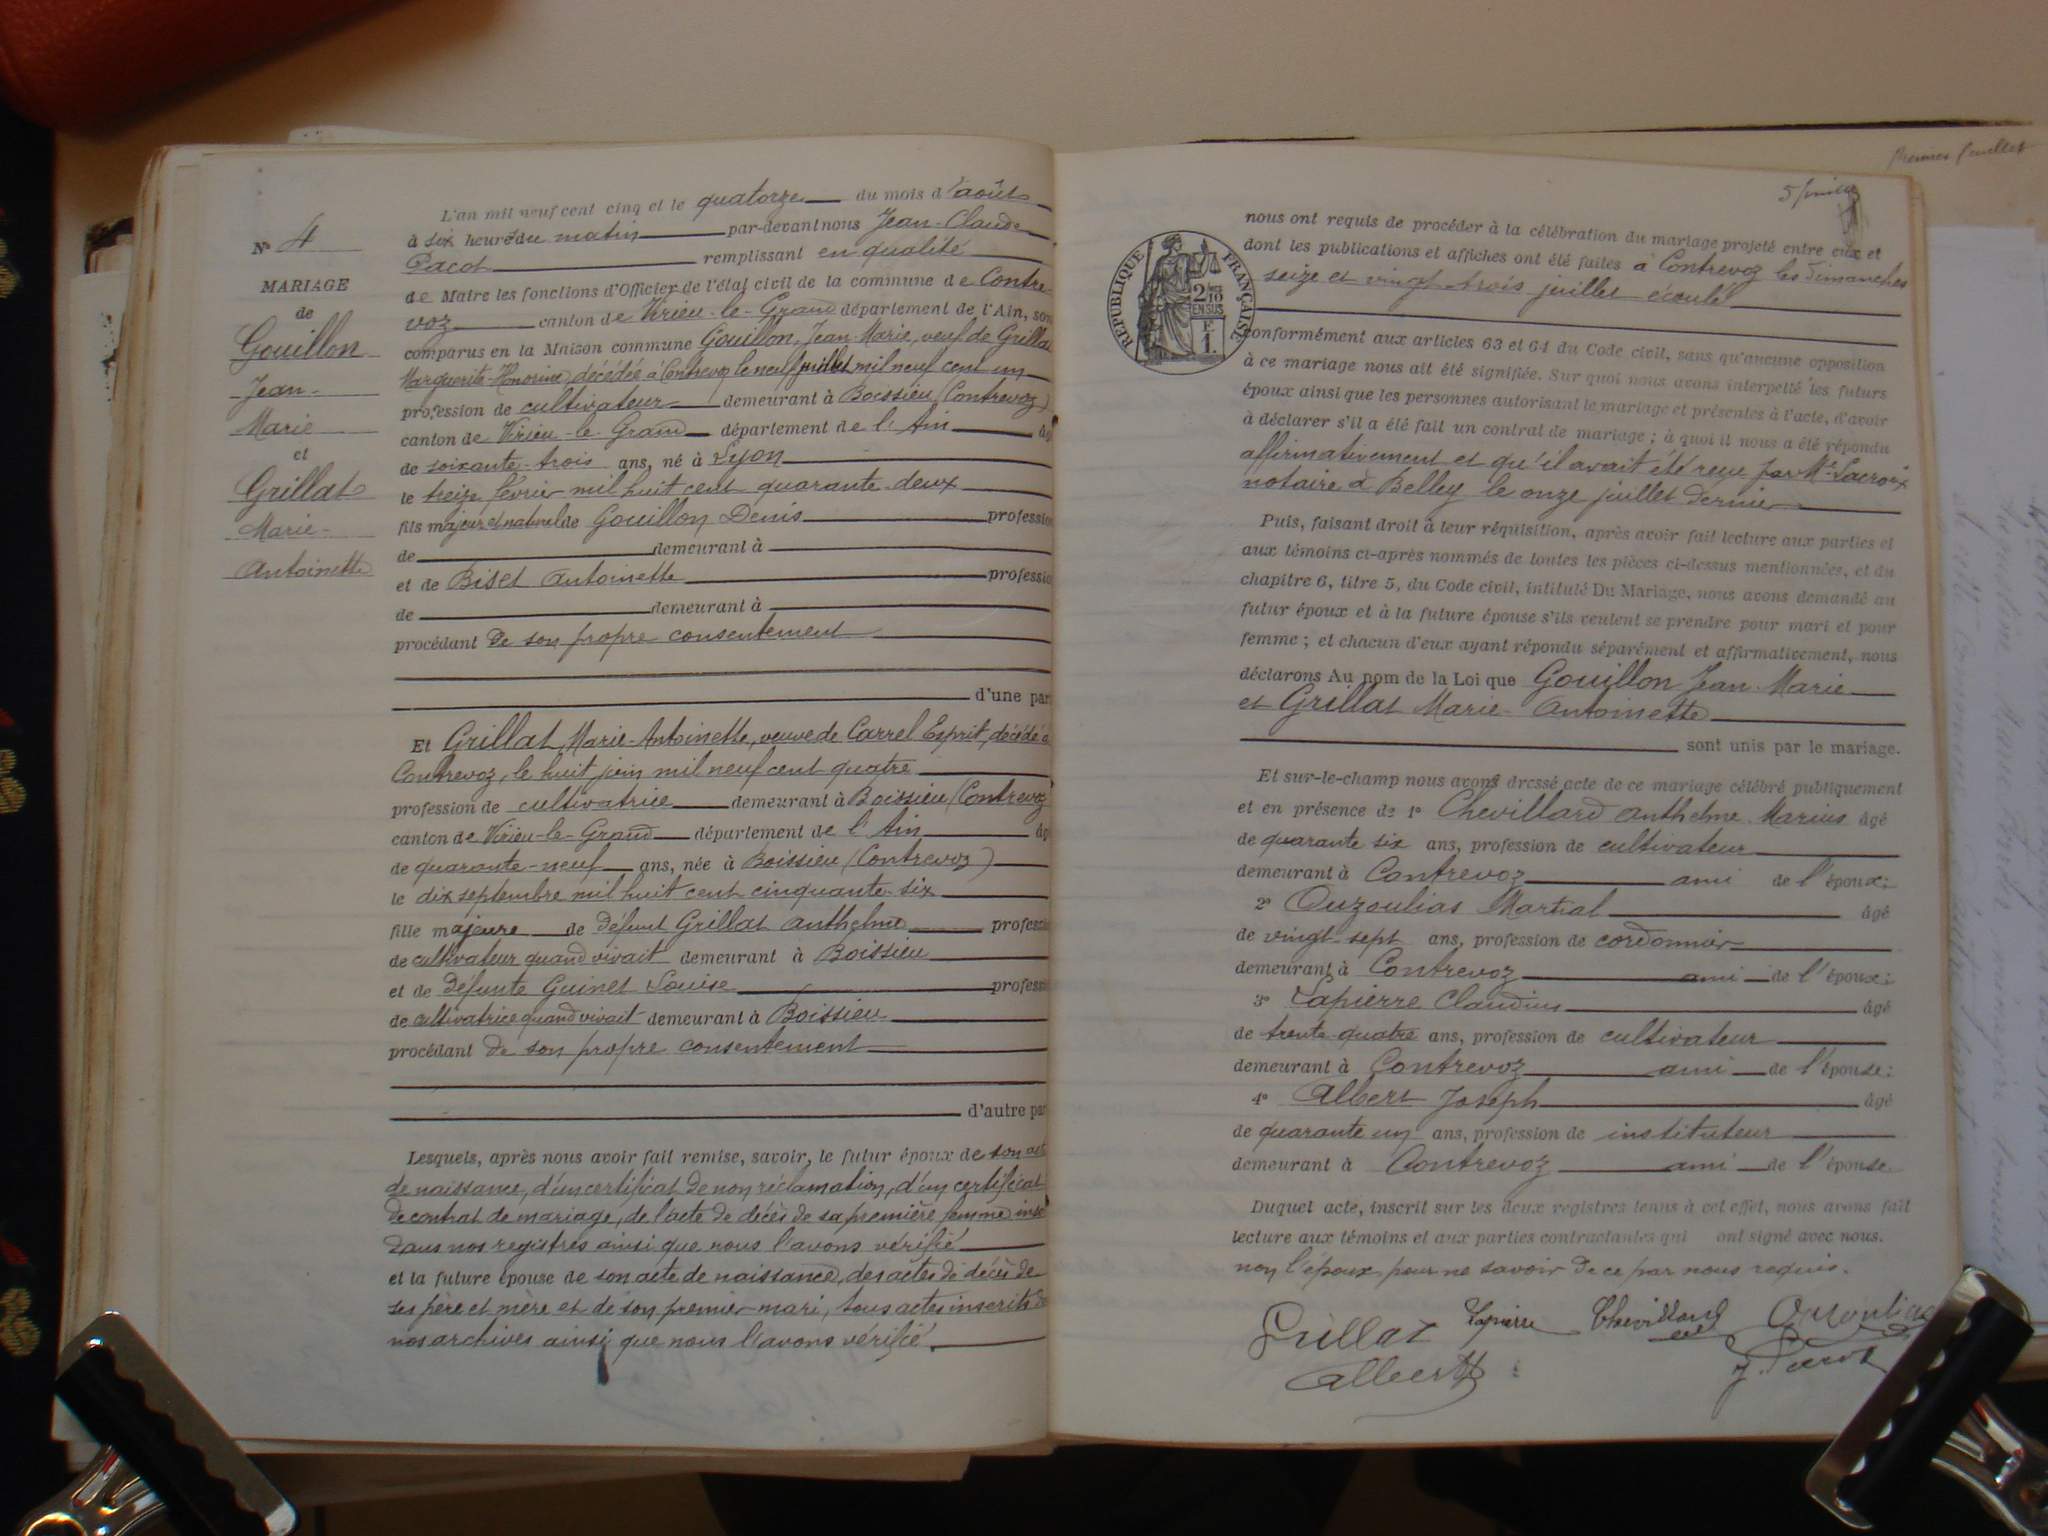 N° 4
MARIAGE
de
Gouillon
Jean-
Marie
et
Grillat
Marie-
Antoinette
L'an mil neuf cent cinq et le quatorze du mois d'août
à six heures du matin par-devant nous Jean-Claude
Pacot remplissant en qualité
de Maire les fonctions d'Officier de l'état civil de la commune de Contre-
voz canton de Virieu-le-Grand département de l'Ain, son
comparus en la Maison commune Gouillon, Jean-Marie, veuf de Grillat
Marguerite-Honorine, décédée à Contrevoz le neuf juillet mil neuf cent un
profession de cultivateur demeurant à Boissieu (Contrevoz)
canton de Virieu-le-Grand département de l'Ain âg
de soixante-trois ans, né à Lyon
le treize février mil huit cent quarante-deux
fils majeur et naturel de Gouillon Denis professio
de demeurant à
et de Biset Antoinette professio
de demeurant à
procédant de son propre consentement
d'une par
Et Grillat, Marie-Antoinette, veuve de Carrel Esprit, décédé à
Contrevoz, le huit juin mil neuf cent quatre
profession de cultivatrice demeurant à Boissieu (Contrevoz
canton de Virieu-le-Grand département de l'Ain âg
de quarante-neuf ans, née à Boissieu (Contrevoz)
le dix septembre mil huit cent cinquante-six
fille majeure de défunt Grillat Anthelme professi
de cultivateur quand vivait demeurant à Boissieu
et de défunte Guinet Louise professi
de cultivatrice quand vivait demeurant à Boissieu
procédant de son propre consentement
d'autre par
Lesquels, après nous avoir fait remise, savoir, le futur époux de son act
de naissance, d'un certificat de non réclamation, d'un certificat
de contrat de mariage, de l'acte de décès de sa première femme insc
dans nos registres ainsi que nous l'avons vérifié
et la future épouse de son acte de naissance, des actes de décès de
ses père et mère et de son premier mari, tous actes inscrits de
nos archives ainsi que nous l'avons vérifié.
nous ont requis de procéder à la célébration du mariage projeté entre eux et
dont les publications et affiches ont été faites à Contrevoz les dimanches
seize et vingt trois juillet écoulé
RÉPUBLIQUE FRANÇAISE
2/10
EN SUS
F.
1.
conformément aux articles 63 et 64 du Code civil, sans qu'aucune opposition
à ce mariage nous ait été signifiée. Sur quoi nous avons interpellé les futurs
époux ainsi que les personnes autorisant le mariage et présentes à l'acte, d'avoir
à déclarer s'il a été fait un contrat de mariage ; à quoi il nous a été répondu
affirmativement et qu'il avait été reçu par Me Lacroix
notaire à Belley le onze juillet dernier
Puis, faisant droit à leur réquisition, après avoir fait lecture aux parties et
aux témoins ci-après nommés de toutes les pièces ci-dessus mentionnées, et du
chapitre 6, titre 5, du Code civil, intitulé Du Mariage, nous avons demandé au
futur époux et à la future épouse s'ils veulent se prendre pour mari et pour
femme ; et chacun d'eux ayant répondu séparément et affirmativement, nous
déclarons Au nom de la Loi que Gouillon Jean-Marie
et Grillat Marie-Antoinette
sont unis par le mariage.
Et sur-le-champ nous avons dressé acte de ce mariage célébré publiquement
et en présence de 1° Chevillard Anthelme Marius âgé
de quarante six ans, profession de cultivateur
demeurant à Contrevoz ami de l'époux;
2° Ouzoulias Martial âgé
de vingt-sept ans, profession de cordonnier
demeurant à Contrevoz ami de l'époux;
3° Lapierre Claudius âgé
de trente-quatre ans, profession de cultivateur
demeurant à Contrevoz ami de l'épouse;
4° Albert Joseph âgé
de quarante un ans, profession de instituteur
demeurant à Contrevoz ami de l'épouse
Duquel acte, inscrit sur les deux registres tenus à cet effet, nous avons fait
lecture aux témoins et aux parties contractantes qui ont signé avec nous.
non l'époux pour ne savoir de ce par nous requis.
Grillat Lapierre Chevillard Ouzoulias
Albert J. Pacot